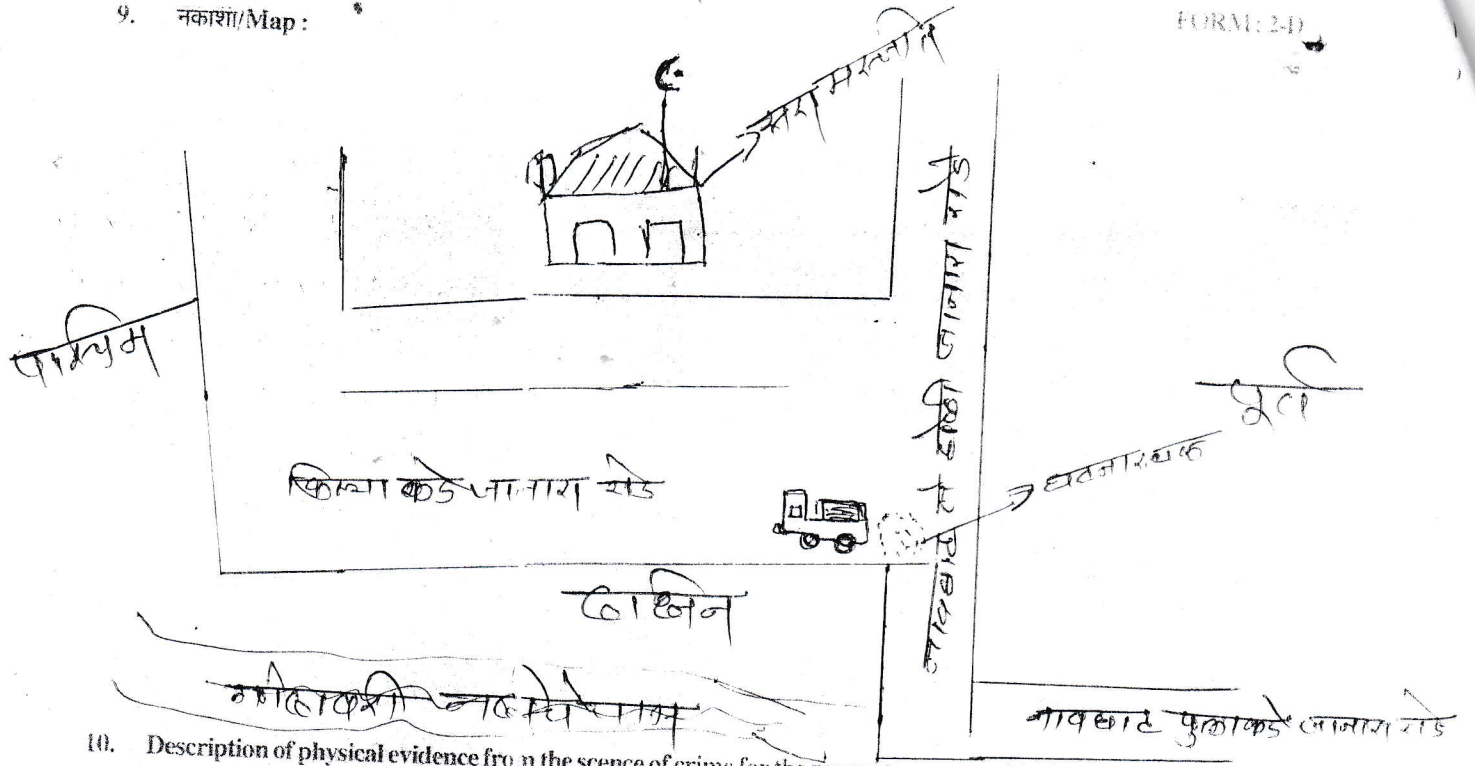 9. नकाशा/Map :
FORM: 2-D
मस्जीत
पश्चिम
पूर्व
किल्याकडे जानारा रोड
घटनास्थळ
नावघाट ते होळी जानारा रोड
दक्षिन
गोदावरी नदीचे पात्र
नावघाट पुलाकडे जानारा रोड
10. Description of physical evidence from the scence of crime for the